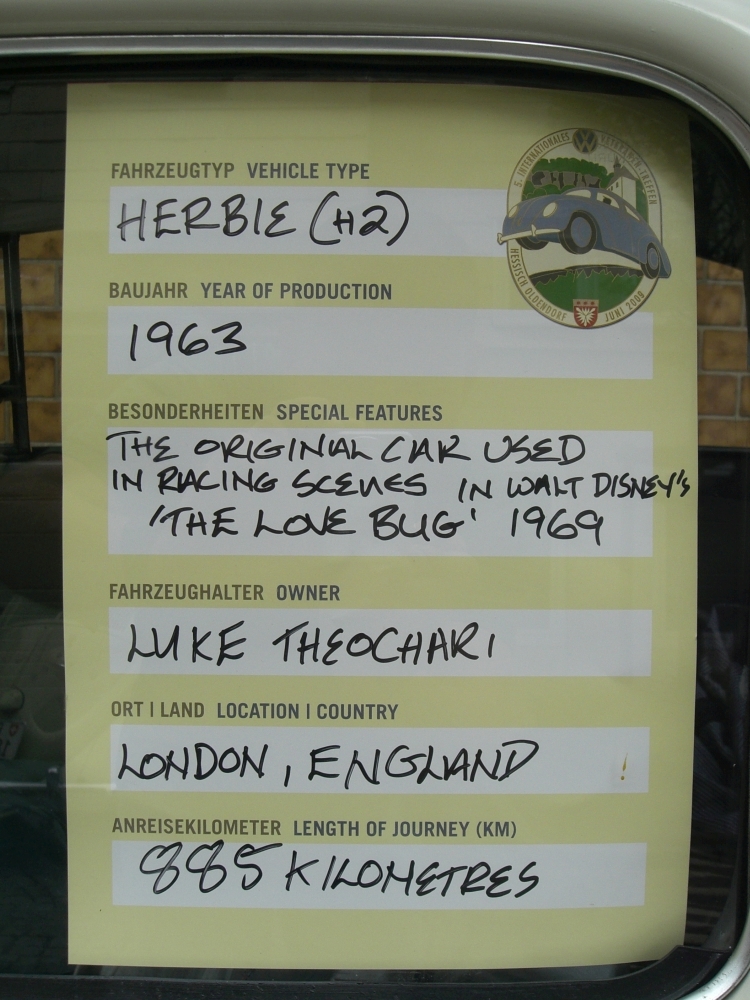 FAHRZEUGTYP VEHICLE TYPE
HERBIE (H2)
5. INTERNATIONALES VETERANEN-TREFFEN
HESSISCH OLDENDORF JUNI 2009
BAUJAHR YEAR OF PRODUCTION
1963
BESONDERHEITEN SPECIAL FEATURES
THE ORIGINAL CAR USED
IN RACING SCENES IN WALT DISNEY'S
'THE LOVE BUG' 1969
FAHRZEUGHALTER OWNER
LUKE THEOCHARI
ORT | LAND LOCATION | COUNTRY
LONDON, ENGLAND
ANREISEKILOMETER LENGTH OF JOURNEY (KM)
885 KILOMETRES